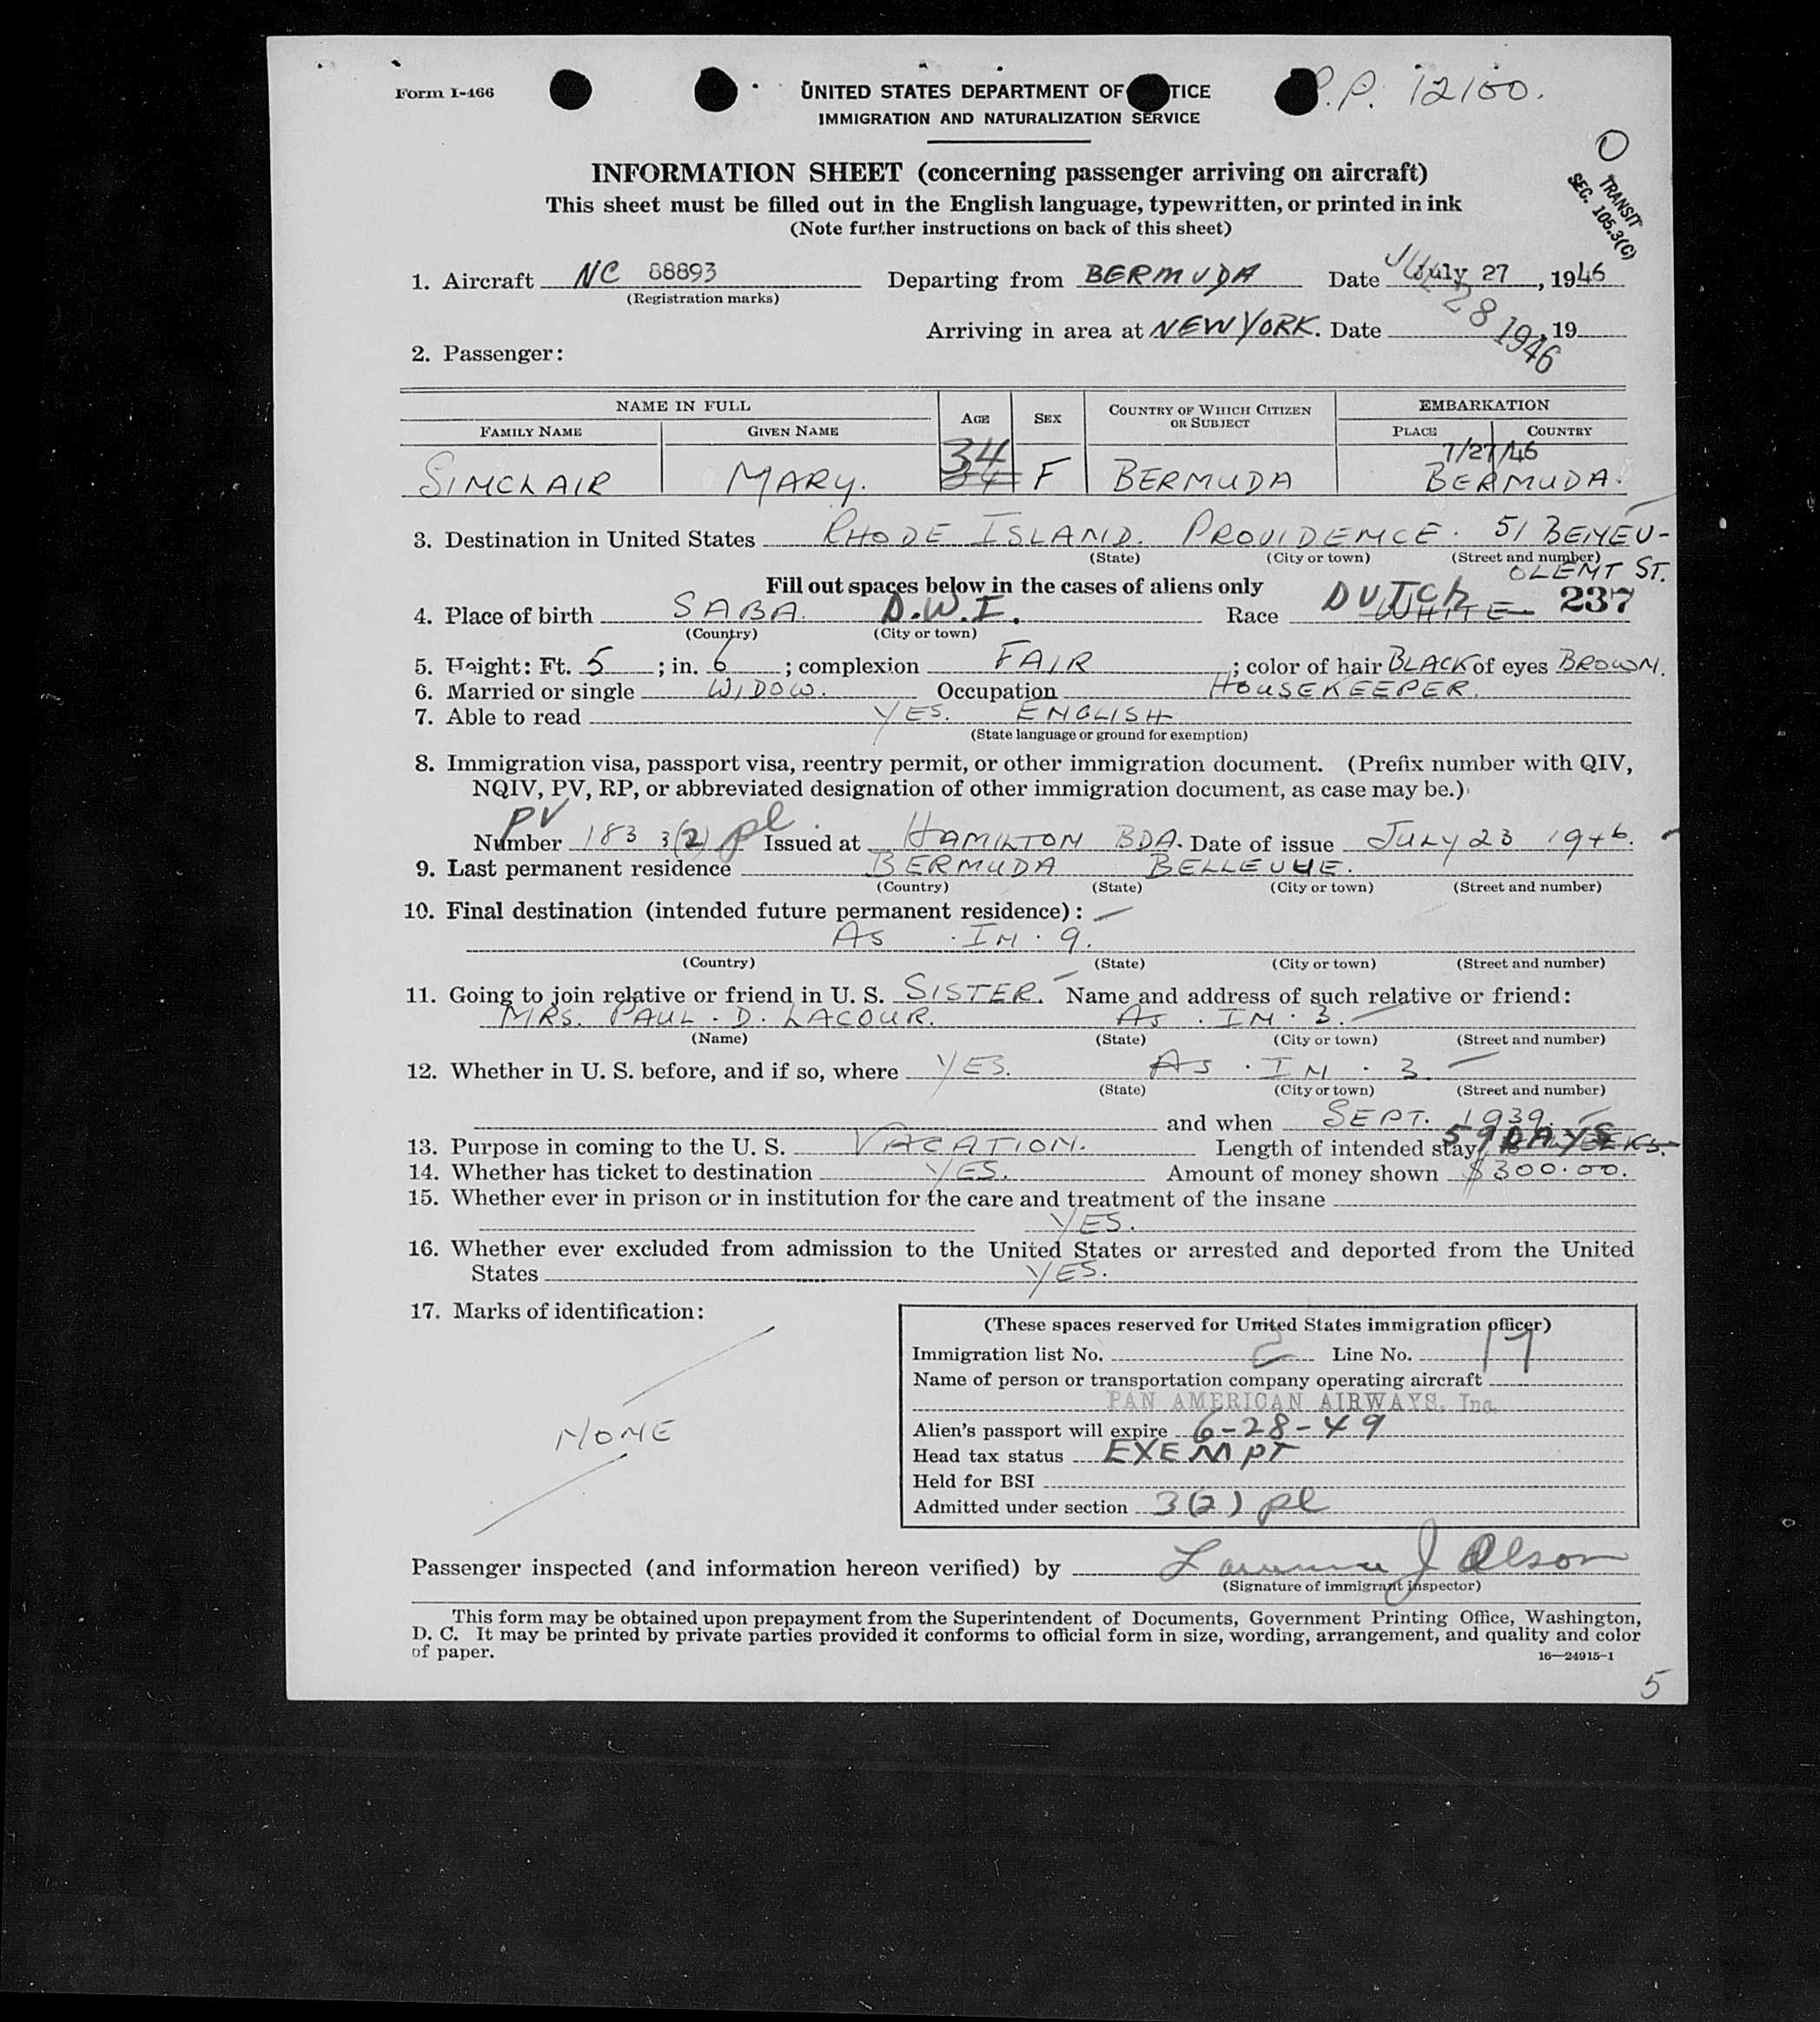 Form I-466
UNITED STATES DEPARTMENT OF TICE
P.P. 12100.
IMMIGRATION AND NATURALIZATION SERVICE
O
TRANSIT
SEC. 105.3(C)
INFORMATION SHEET (concerning passenger arriving on aircraft)
This sheet must be filled out in the English language, typewritten, or printed in ink
(Note further instructions on back of this sheet)
1. Aircraft NC 88893 Departing from BERMUDA Date July 27, 1946
(Registration marks)
Arriving in area at NEW YORK. Date JUL 28 1946, 19
2. Passenger:
NAME IN FULL AGE SEX COUNTRY OF WHICH CITIZEN OR SUBJECT EMBARKATION
FAMILY NAME GIVEN NAME PLACE COUNTRY
34 7/27/46
SINCLAIR MARY. F BERMUDA BERMUDA.
3. Destination in United States RHODE ISLAND. PROVIDENCE. 51 BENEV-
(State) (City or town) (Street and number)
OLENT ST.
Fill out spaces below in the cases of aliens only
4. Place of birth SABA. D.W.I. Race DUTCH WHITE 237
(Country) (City or town)
5. Height: Ft. 5; in. 6; complexion FAIR; color of hair BLACK of eyes BROWN.
6. Married or single WIDOW. Occupation HOUSEKEEPER.
7. Able to read YES. ENGLISH
(State language or ground for exemption)
8. Immigration visa, passport visa, reentry permit, or other immigration document. (Prefix number with QIV,
NQIV, PV, RP, or abbreviated designation of other immigration document, as case may be.)
PV
Number 183 3(2) pl. Issued at HAMILTON BDA. Date of issue JULY 23 1946.
9. Last permanent residence BERMUDA BELLEVUE.
(Country) (State) (City or town) (Street and number)
10. Final destination (intended future permanent residence):
AS . IN . 9.
(Country) (State) (City or town) (Street and number)
11. Going to join relative or friend in U. S. SISTER. Name and address of such relative or friend:
MRS. PAUL . D. LACOUR. AS . IN . 3.
(Name) (State) (City or town) (Street and number)
12. Whether in U. S. before, and if so, where YES. AS . IN . 3.
(State) (City or town) (Street and number)
and when SEPT. 1939.
13. Purpose in coming to the U. S. VACATION. Length of intended stay 59 DAYS
14. Whether has ticket to destination YES. Amount of money shown $300.00.
15. Whether ever in prison or in institution for the care and treatment of the insane
YES.
16. Whether ever excluded from admission to the United States or arrested and deported from the United
States YES.
17. Marks of identification:
NONE
(These spaces reserved for United States immigration officer)
Immigration list No. Line No. 17
Name of person or transportation company operating aircraft
PAN AMERICAN AIRWAYS, Inc.
Alien's passport will expire 6-28-49
Head tax status EXEMPT
Held for BSI
Admitted under section 3(2) pl
Passenger inspected (and information hereon verified) by Lawrence J Olson
(Signature of immigrant inspector)
This form may be obtained upon prepayment from the Superintendent of Documents, Government Printing Office, Washington,
D. C. It may be printed by private parties provided it conforms to official form in size, wording, arrangement, and quality and color
of paper.
16—24915-1
5